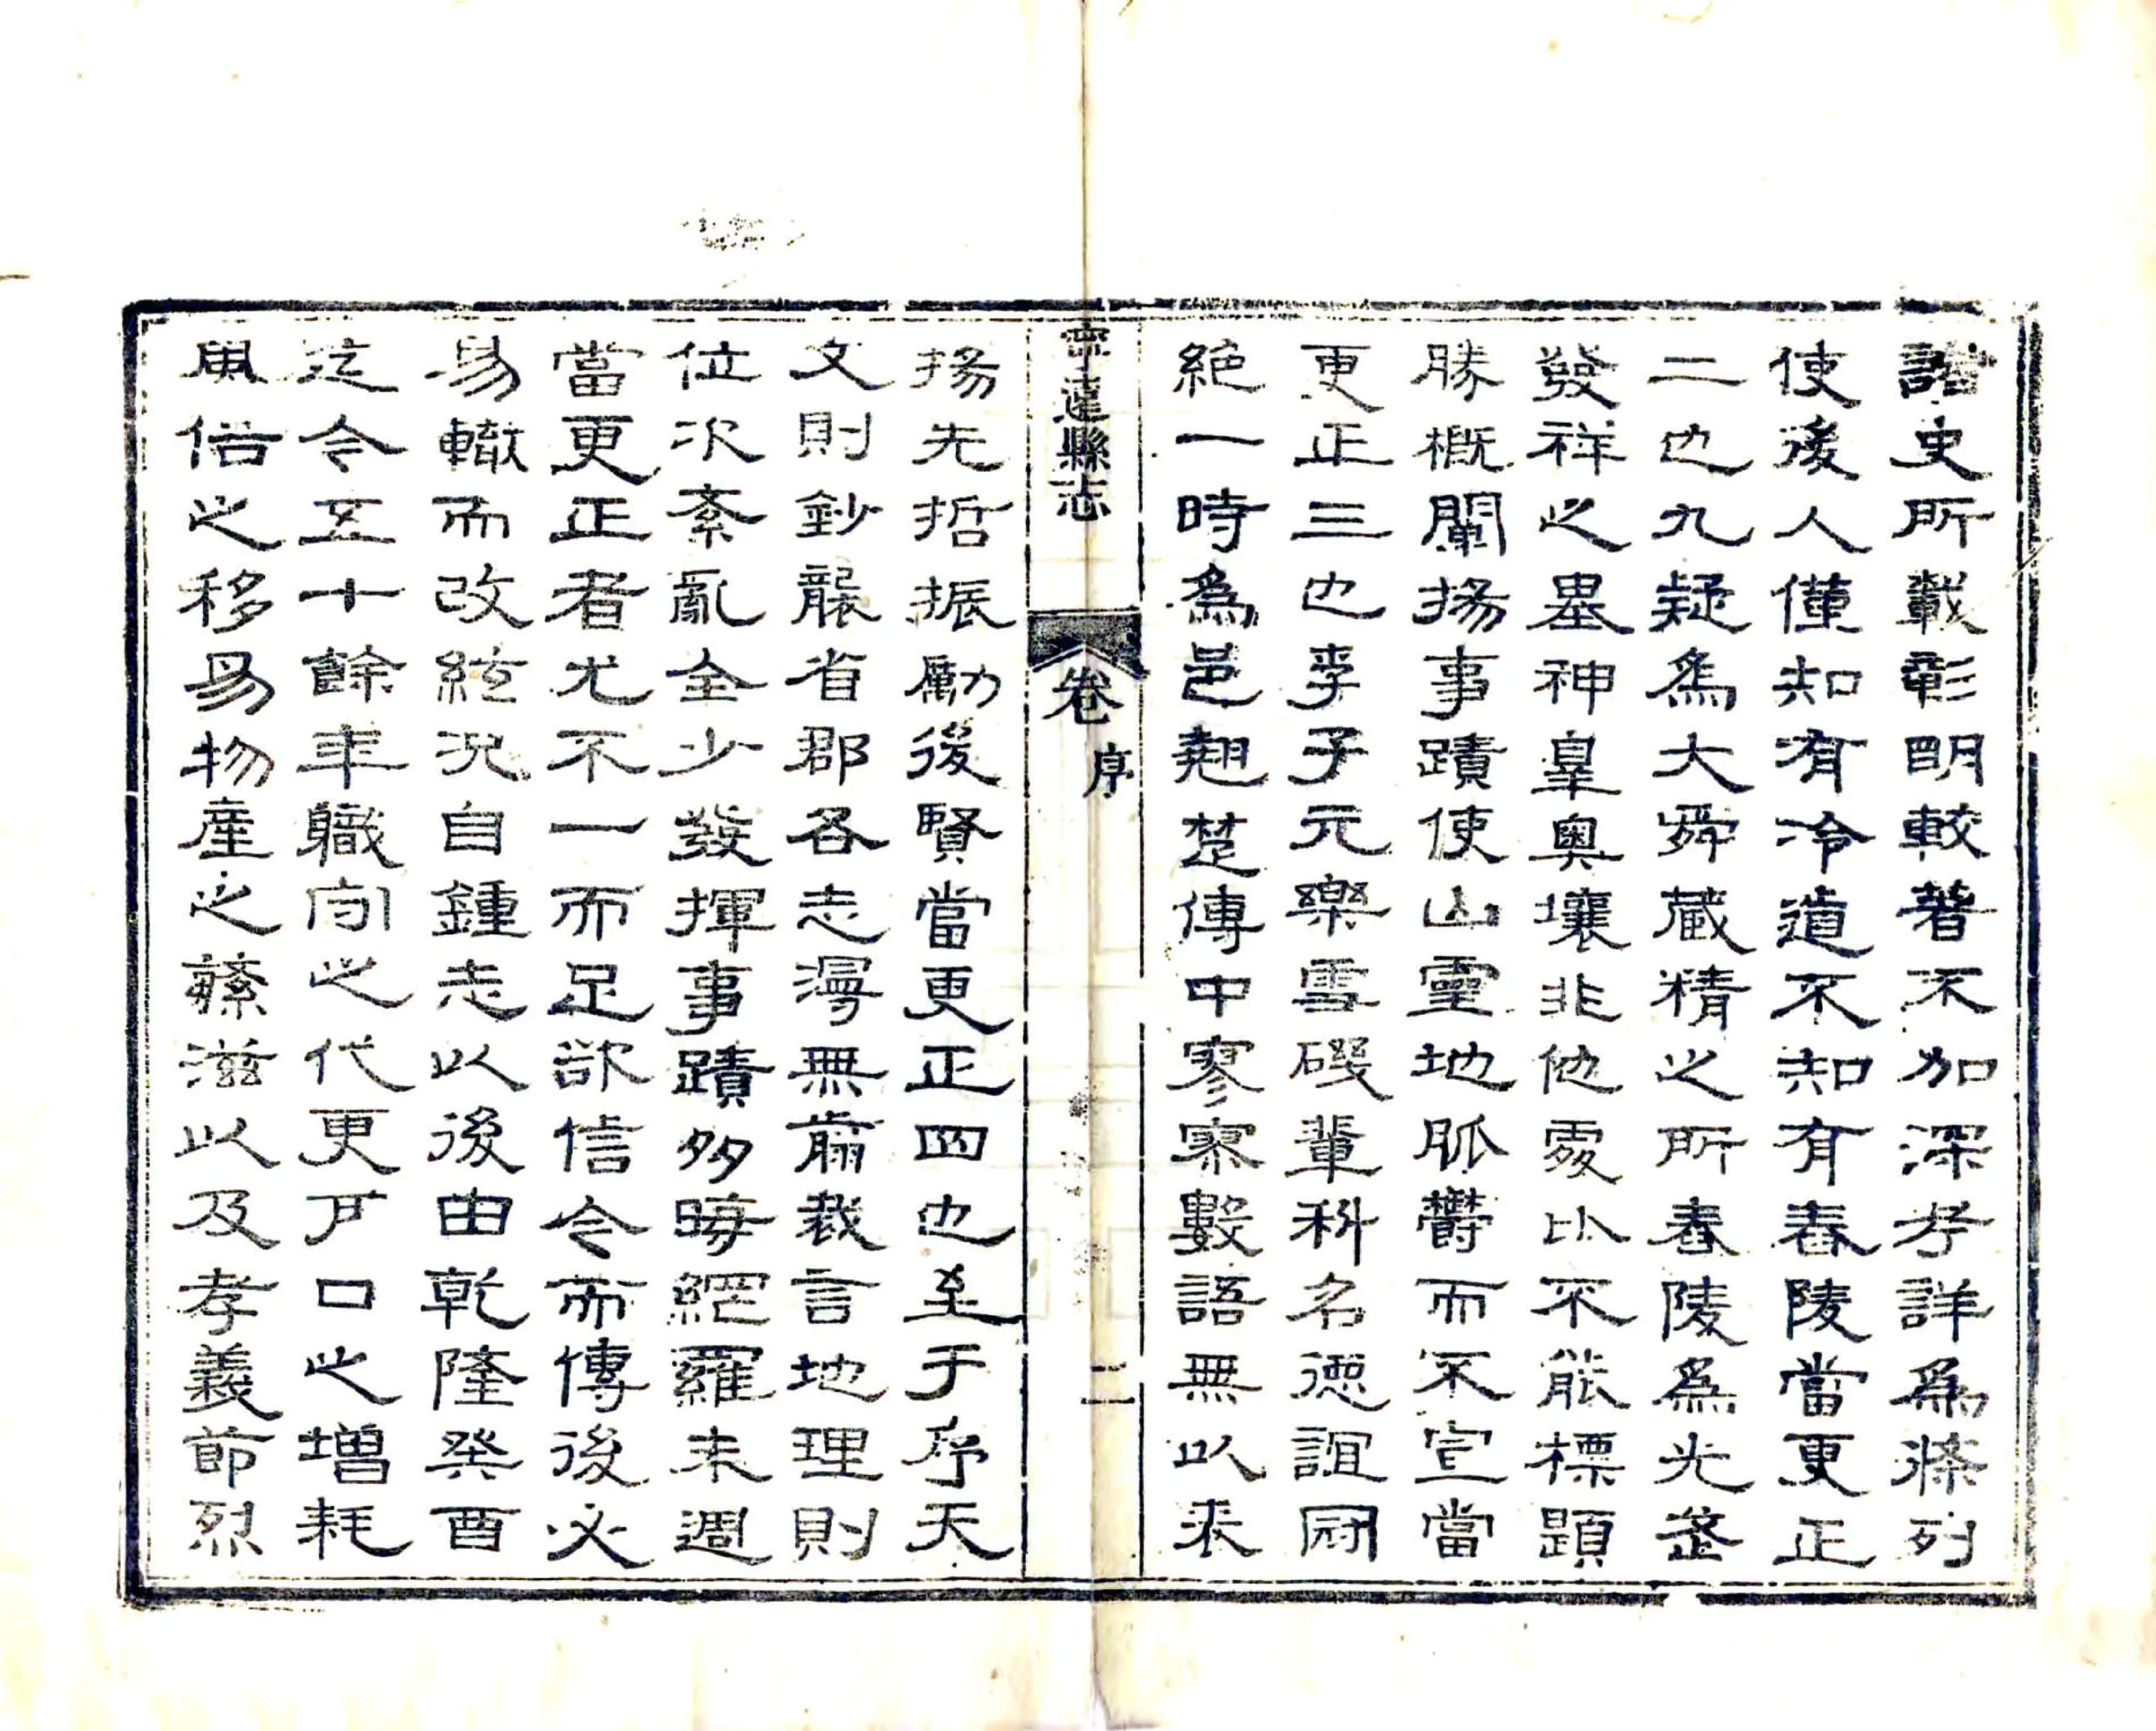 諸史所載彰明較著不加深考詳爲條列
使後人僅知有泠道不知有舂陵當更正
二也九疑爲大舜藏精之所舂陵爲光武
發祥之墨神皐奧壤非他處比不能標題
勝槪闡揚事蹟使山靈地脈鬱而不宣當
更正三也李子元樂雪磯輩科名德誼冠
絕一時爲邑翹楚傳中寥寥數語無以表
寧遠縣志
卷 序
二
揚先哲振勵後賢當更正四也至于序天
文則鈔襲省郡各志漫無翦裁言地理則
位次紊亂全少發揮事蹟多晦網羅未週
當更正者尤不一而足欲信今而傳後必
易轍而改絃況自鍾志以後由乾隆癸酉
迄今五十餘年職向之代更戸口之增耗
風俗之移易物產之蘇滋以及孝義節烈